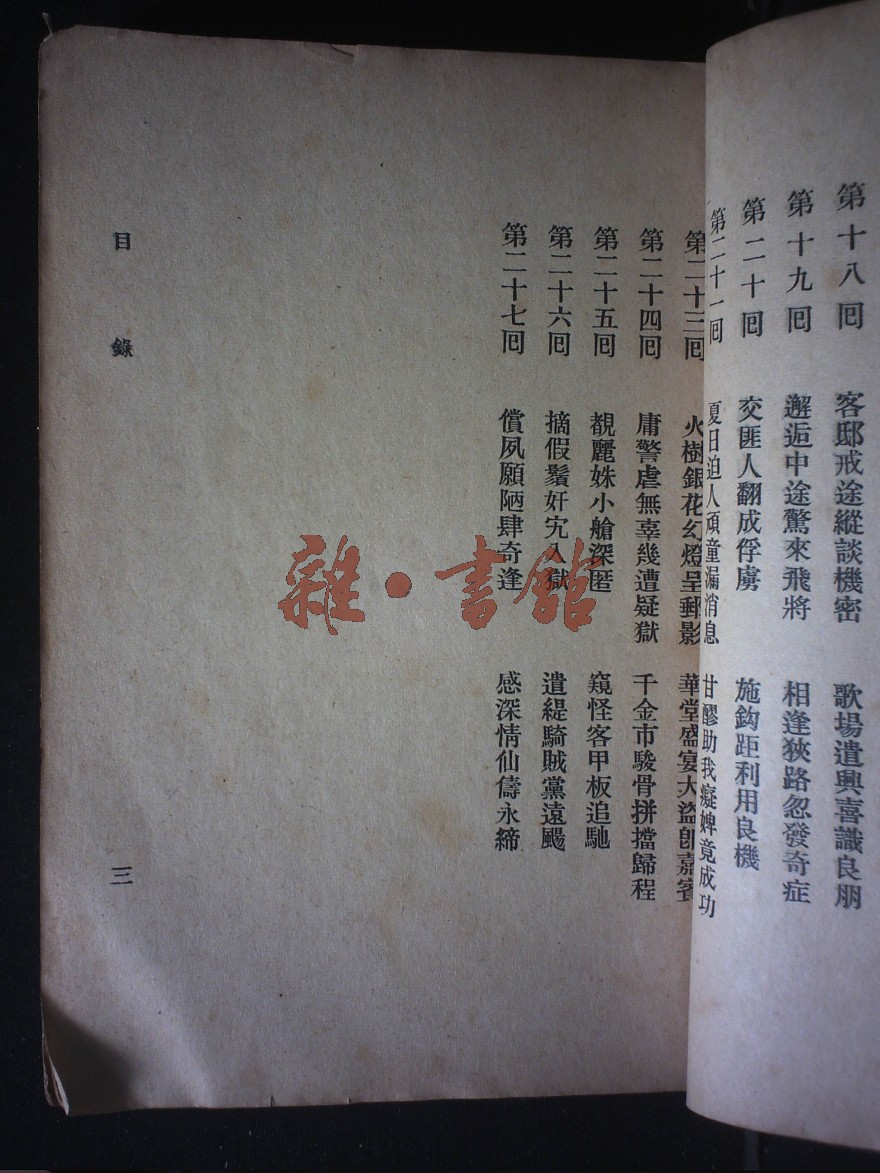 第十八囘　客邸戒途縱談機密　歌場遣興喜識良朋
第十九囘　邂逅中途驚來飛將　相逢狹路忽發奇症
第二十囘　交匪人翻成俘虜　施鈎距利用良機
第二十一囘　夏日迫人頑童漏消息　甘醪助我癡婢竟成功
第二十三囘　火樹銀花幻燈呈郵影　華堂盛宴大盜卽嘉賓
第二十四囘　庸警虐無辜幾遭疑獄　千金市駿骨拼擋歸程
第二十五囘　覩麗姝小艙深匿　窺怪客甲板追馳
第二十六囘　摘假鬚奸宄入獄　遣緹騎賊黨遠颺
第二十七囘　償夙願陋肆奇逢　感深情仙儔永締
目錄
三
雜·書館